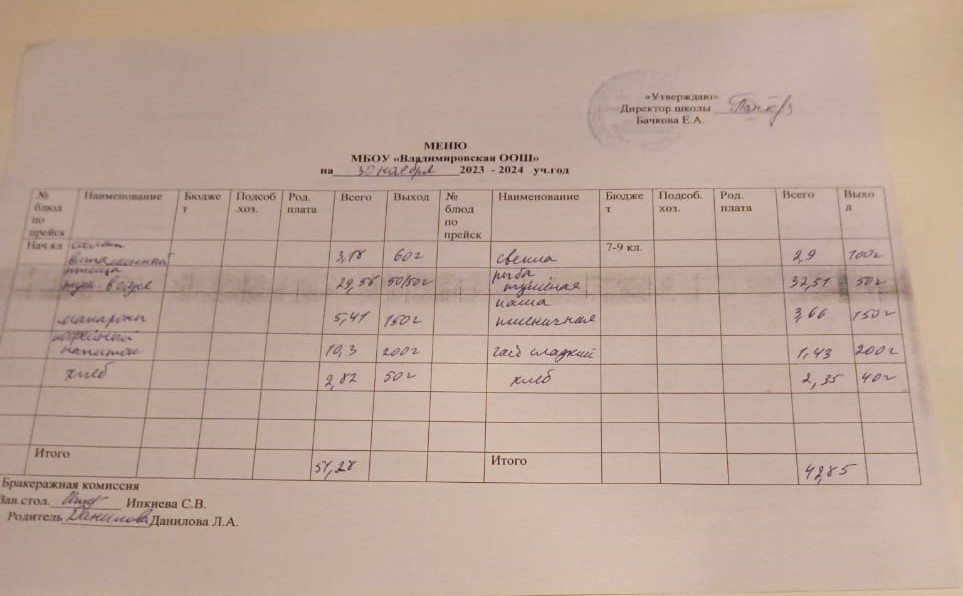 «Утверждаю»
Директор школы
Бачкова Е.А.
МЕНЮ
МБОУ «Владимировская ООШ»
на 30 ноября 2023 - 2024 уч.год
№ блюд по прейск Наименование Бюджет Подсоб.хоз. Род. плата Всего Выход № блюд по прейск Наименование Бюджет Подсоб. хоз. Род. плата Всего Выход
Нач.кл салат витаминный 3,18 60г свекла 7-9 кл. 2,9 100г
птица туш. в соусе 29,56 50/50г рыба тушёная 32,51 50г
макароны 5,41 150г каша пшеничная 3,66 150г
кофейный напиток 10,3 200г чай сладкий 1,43 200г
хлеб 2,82 50г хлеб 2,35 40г
Итого 51,28 Итого 42,85
Бракеражная комиссия
Зав.стол. Ипкиева С.В.
Родитель Данилова Данилова Л.А.